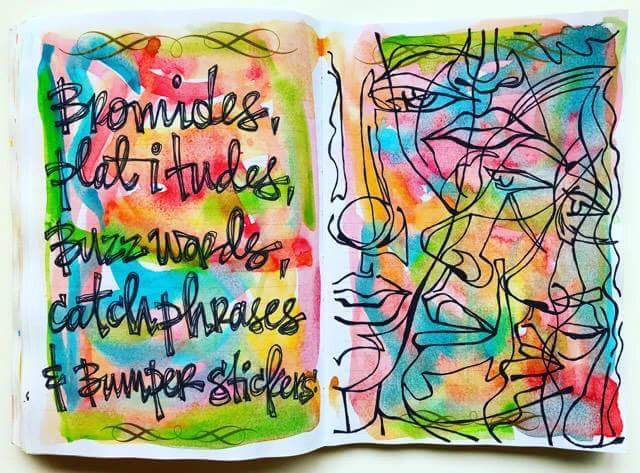 Bromides,
platitudes,
Buzz words,
catchphrases
& Bumper stickers